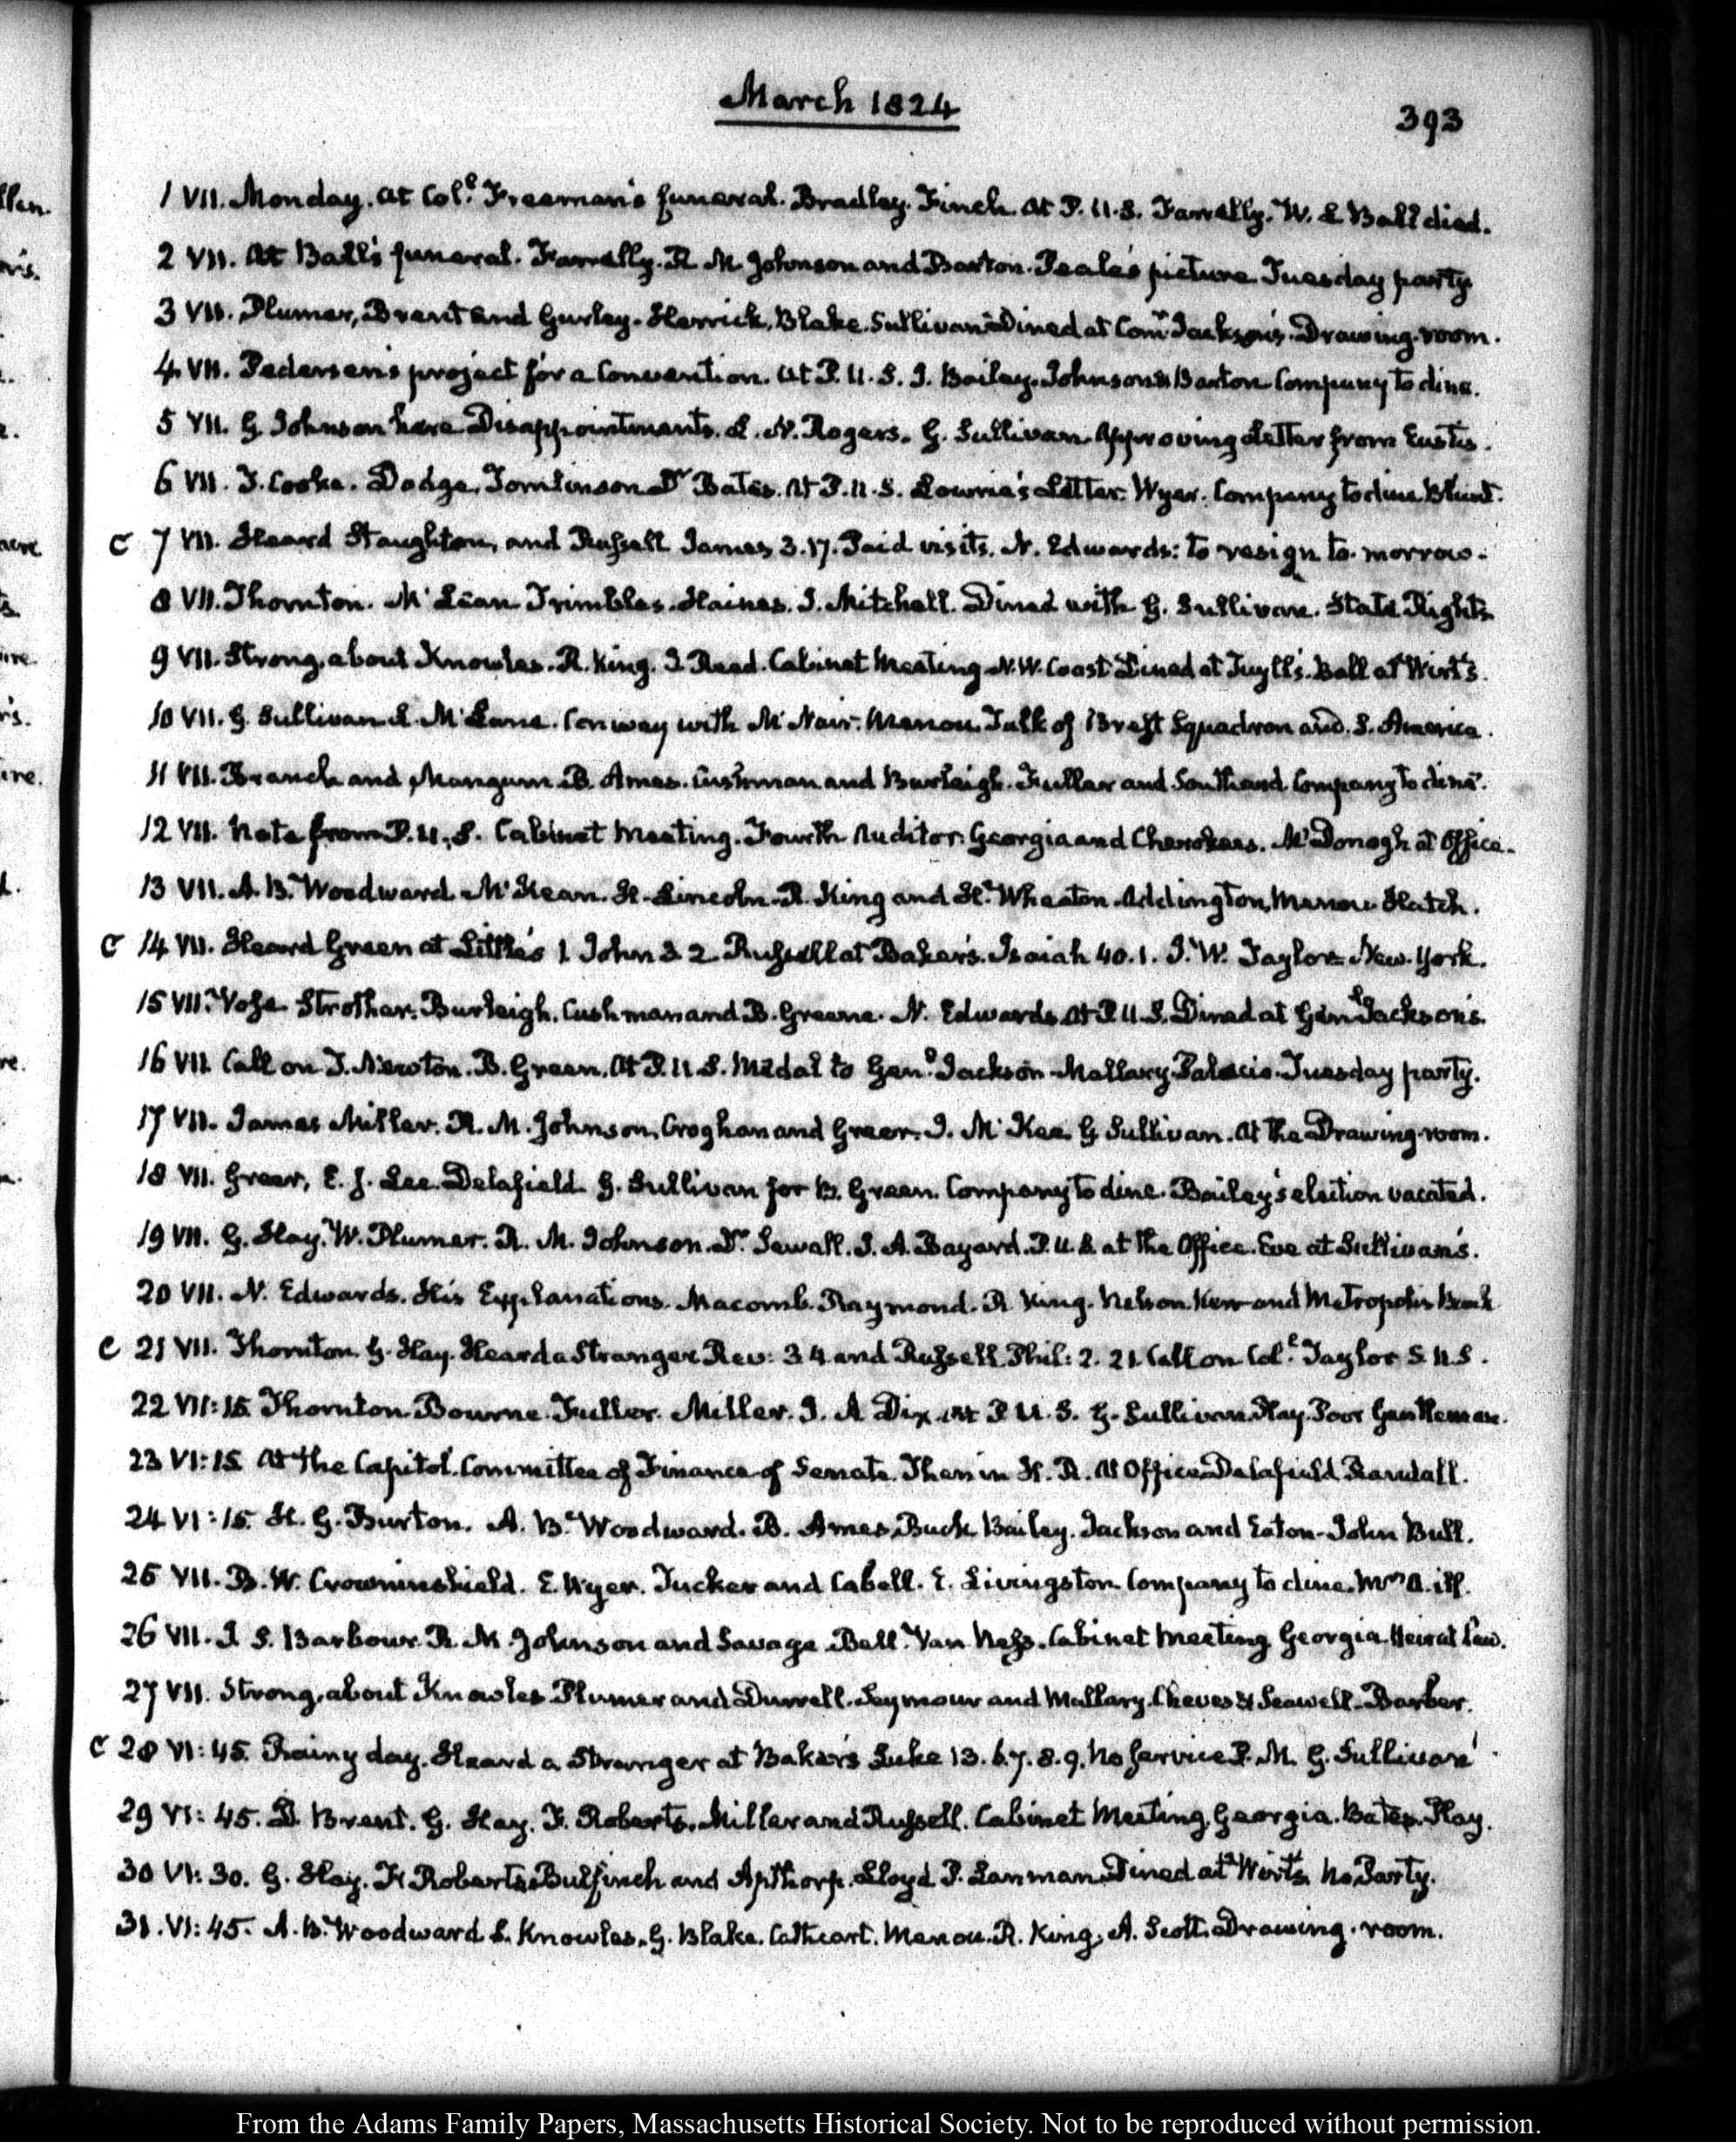 March 1824
393
1 VII. Monday. at Col.l Freeman's funeral. Bradley. Finch. at P. U.S. Farrelly. W. L Ball died.
2 VII. At Ball's funeral. Farrelly. R. M. Johnson and Barton. Peale's picture Tuesday party
3 VII. Plumer, Brent and Gurley. Herrick, Blake. Sullivan Dined at Com.r Jackson's. Drawing-room.
4 VII. Pedersen's project for a Convention. at P. U. S. J. Bailey. Johnson & Barton Company to dine.
5 VII. G. Johnson here Disappointments. L. N. Rogers. G. Sullivan. Approving Letter from Eustis.
6 VII. J. Cooke. Dodge, Tomlinson Dr Bates. At P. U. S. Lowrie's Letter. Wyer. Company to dine. Blunt.
C 7 VII. Heard Staughton, and Russell James 3.17. Paid visits. N. Edwards: to resign to-morrow.
8 VII. Thornton. McLean Trimbles. Haines. J. Mitchell. Dined with G. Sullivan. State Rights
9 VII. Strong, about Knowles. R. King. J. Reed. Cabinet Meeting N. W. Coast Dined at Tuyll's. Ball at Wirt's.
10 VII. G. Sullivan L. McLane. Conway with McNair. Menou. Talk of Brest Squadron and S. America.
11 VII. Branch and Mangum. B. Ames. Cushman and Burleigh. Fuller and Southard. Company to dine.
12 VII. Note from P. U. S. Cabinet Meeting. Fourth Auditor. Georgia and Cherokees. McDonogh at Office.
13 VII. A. B. Woodward McKean. H. Lincoln. R. King and H. Wheaton. Addington, Menou Hatch.
C 14 VII. Heard Green at Little's 1. John 3. 2 Russell at Baker's. Isaiah 40.1. J. W. Taylor New-York.
15 VII. Vose Strother. Burleigh. Cushman and B. Greene. N. Edwards. At P. U. S. Dined at Gen.l Jackson's.
16 VII. Call on T. Newton. B. Green. At P. U. S. Medal to Gen.l Jackson. Mallary. Palacio. Tuesday party.
17 VII. James Miller. R. M. Johnson, Croghan and Greer. J. McKee. G. Sullivan. At the Drawing-room.
18 VII. Greer, E. J. Lee. Delafield. G. Sullivan for B. Green. Company to dine. Bailey's election vacated.
19 VII. G. Hay. W. Plumer. R. M. Johnson. Dr Sewall. J. A. Bayard. P. U. S. at the Office. Eve at Sullivan's.
20 VII. N. Edwards. His Explanations. Macomb. Raymond. R. King. Nelson. Kerr and Metropolis Bank
C 21 VII. Thornton. G. Hay. Heard a Stranger Rev: 3 4 and Russell Phil: 2. 21. Call on Col.l Taylor S. U. S.
22 VII:15. Thornton Bourne. Fuller. Miller. J. A Dix. At P. U. S. G. Sullivan. Play. Poor Gentleman.
23 VI:15. At the Capitol. Committee of Finance of Senate. Then in H. R. At Office Delafield Randall.
24 VI:15. H. G. Burton. A. B. Woodward. B. Ames, Buck Bailey. Jackson and Eaton. John Bull.
25 VII. B. W. Crowninshield. E. Wyer. Tucker and Cabell. E. Livingston. Company to dine. Mrs A. ill.
26 VII. J S. Barbour. R. M. Johnson and Savage. Ball. Van Ness. Cabinet Meeting Georgia. Heir at Law.
27 VII. Strong, about Knowles Plumer and Durrell. Seymour and Mallary. Cheves & Seawell. Barber.
C 28 VI:45. Rainy day. Heard a Stranger at Baker's Luke 13. 6. 7. 8. 9. No service P. M. G. Sullivan
29 VI:45. D. Brent. G. Hay. F. Roberts. Miller and Russell. Cabinet Meeting. Georgia. Bates. Play.
30 VI:30. G. Hay. F. Roberts. Bulfinch and Apthorp. Lloyd. P. Lanman. Dined at Wirt's. No Party.
31. VI:45. A. B. Woodward S. Knowles. G. Blake. Cathcart. Menou. R. King. A. Scott. Drawing-room.
From the Adams Family Papers, Massachusetts Historical Society. Not to be reproduced without permission.